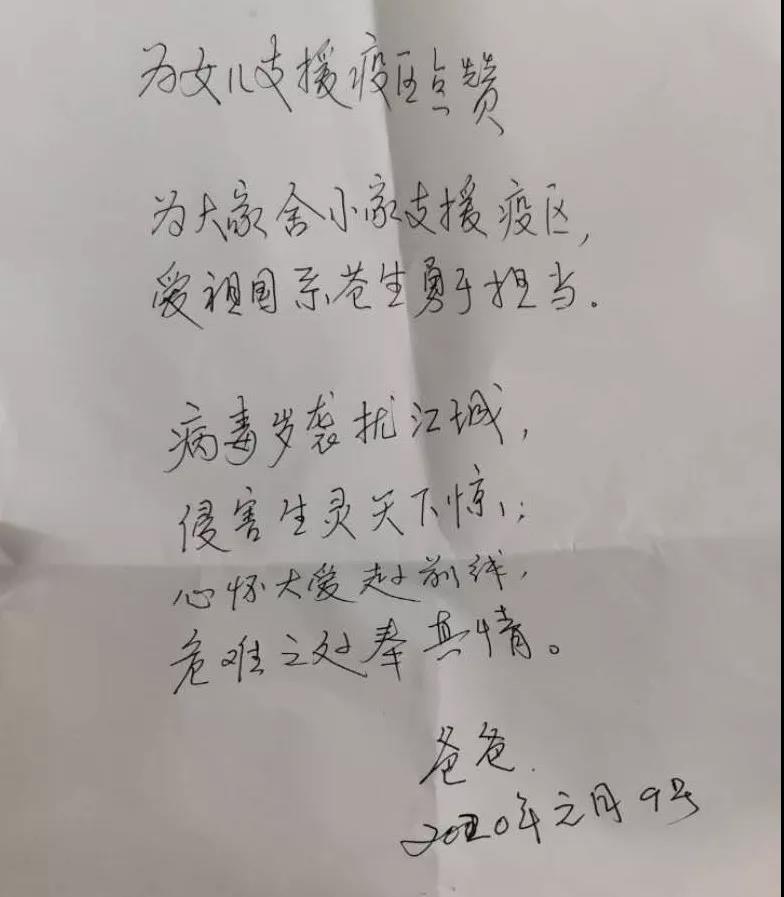 为女儿支援疫区点赞
为大家舍小家支援疫区,
爱祖国系苍生勇于担当.
病毒岁袭扰江城,
侵害生灵天下惊;
心怀大爱赴前线,
危难之处奉真情。
爸爸.
2020年元月9号